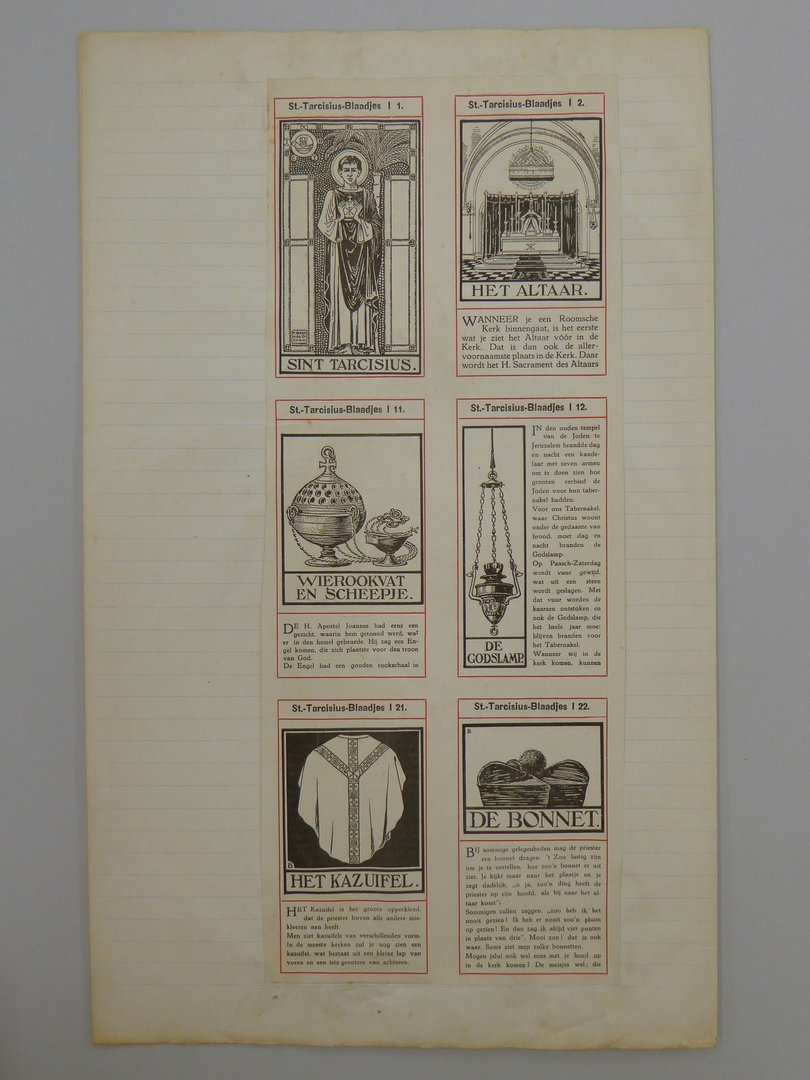 St.-Tarcisius-Blaadjes I 1.
SINT TARCISIUS.
St.-Tarcisius-Blaadjes I 2.
HET ALTAAR.
WANNEER je een Roomsche
Kerk binnengaat, is het eerste
wat je ziet het Altaar vóór in de
Kerk. Dat is dan ook de aller-
voornaamste plaats in de Kerk. Daar
wordt het H. Sacrament des Altaars
St.-Tarcisius-Blaadjes I 11.
WIEROOKVAT
EN SCHEEPJE.
DE H. Apostel Joannes had eens een
gezicht, waarin hem getoond werd, wat
er in den hemel gebeurde. Hij zag een En-
gel komen, die zich plaatste voor den troon
van God.
De Engel had een gouden rookschaal in
St.-Tarcisius-Blaadjes I 12.
DE
GODSLAMP.
IN den ouden tempel
van de Joden te
Jeruzalem brandde dag
en nacht een kande-
laar met zeven armen
om te doen zien hoe
grooten eerbied de
Joden voor hun taber-
nakel hadden.
Voor ons Tabernakel,
waar Christus woont
onder de gedaante van
brood, moet dag en
nacht branden de
Godslamp.
Op Paasch-Zaterdag
wordt vuur gewijd,
wat uit een steen
wordt geslagen. Met
dat vuur worden de
kaarsen ontstoken en
ook de Godslamp, die
het heele jaar moet
blijven branden voor
het Tabernakel.
Wanneer wij in de
kerk komen, kunnen
St.-Tarcisius-Blaadjes I 21.
B
HET KAZUIFEL.
HET Kazuifel is het groote opperkleed,
dat de priester boven alle andere mis-
kleeren aan heeft.
Men ziet kazuifels van verschillenden vorm.
In de meeste kerken zul je nog zien een
kazuifel, wat bestaat uit een kleine lap van
voren en een iets grootere van achteren.
St.-Tarcisius-Blaadjes I 22.
B.
DE BONNET.
BIJ sommige gelegenheden mag de priester
een bonnet dragen. 't Zou lastig zijn
om je te vertellen, hoe zoo'n bonnet er uit
ziet. Je kijkt maar naar het plaatje en je
zegt dadelijk, „o ja, zoo'n ding heeft de
priester op zijn hoofd, als hij naar het al-
taar komt".
Sommigen zullen zeggen, „zoo heb ik het
nooit gezien! Ik heb er nooit zoo'n pluim
op gezien! En dan zag ik altijd vier punten
in plaats van drie". Mooi zoo! dat is ook
waar. Soms ziet men zulke bonnetten.
Mogen jelui ook wel eens met je hoed op
in de kerk komen? De meisjes wel; die